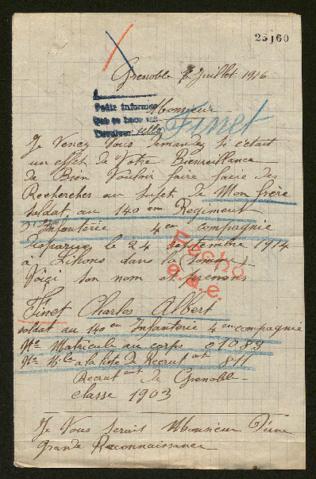 25160
Grenoble 7 Juillet 1916
Pedir informes
Que se hace
Devolver
Monsieur
Finet
Je Venez Vous demandez si c'était
un effet de Votre Bienveillance
de Bien Vouloir faire faire des
Recherches au sujet de Mon frère
soldat au 140 em Regiment
d'Infanterie 4 em compagnie
Disparu le 24 septembre 1914
à Lihons dans la Somme
Voici son nom et prénoms
Fecho
Finet Charles Albert
soldat au 140 em Infanterie 4 em compagnie
Nº Matricule au corps 01083
Nº Mle a la liste de Recrut ent 811
Recrut ent de Grenoble
classe 1903
Je Vous serais Monsieur d'une
grande Reconnaissance